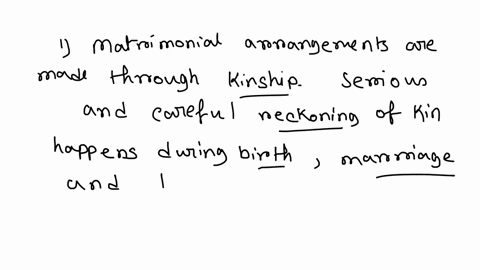 1) Matrimonial arrangements are
made through kinship. Serious
and careful reckoning of kin
happens during birth, marriage
and